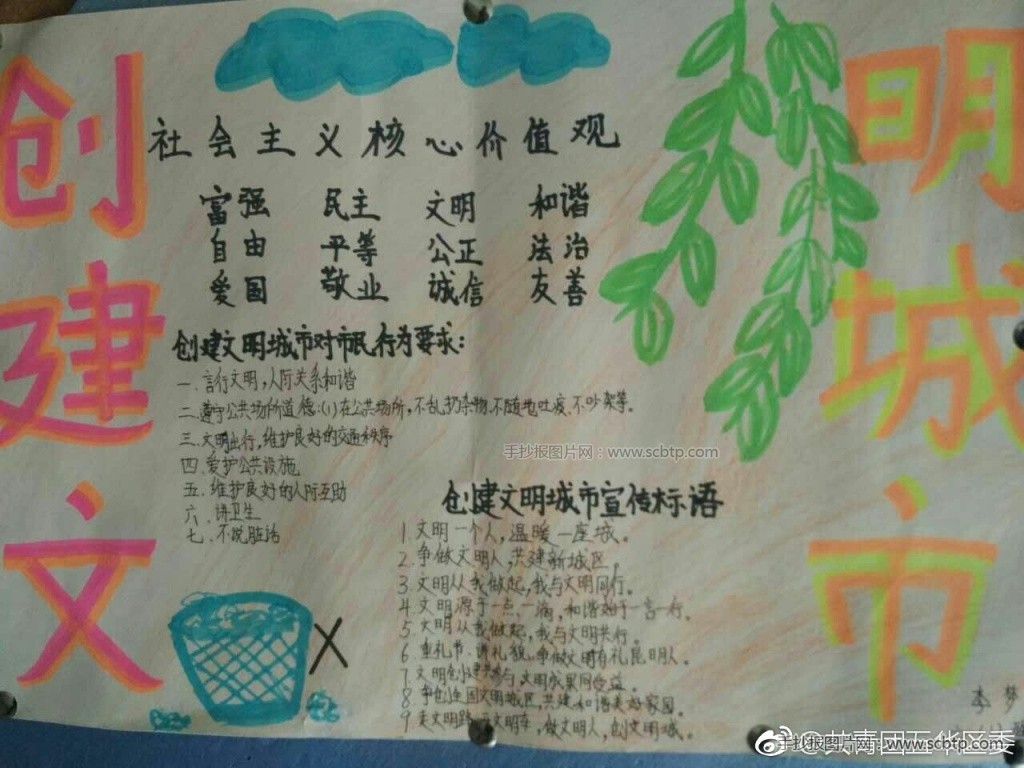 创建文
明城市
社会主义核心价值观
富强 民主 文明 和谐
自由 平等 公正 法治
爱国 敬业 诚信 友善
创建文明城市对市民行为要求:
一.言行文明,人际关系和谐
二.遵守公共场所道德:(1)在公共场所,不乱扔杂物.不随地吐痰.不吵架等。
三.文明出行,维护良好的交通秩序
四.爱护公共设施
五.维护良好的人际互助
六.讲卫生
七.不说脏话
手抄报图片网:www.scbtp.com
创建文明城市宣传标语
1.文明一个人,温暖一座城。
2.争做文明人,共建新城区。
3.文明从我做起,我与文明同行。
4.文明源于一点一滴,和谐始于一言一行。
5.文明从我做起,我与文明共行。
6.重礼节、讲礼貌、争做文明有礼昆明人。
7.文明创建共参与,文明成果同受益。
8.争创全国文明城区,共建和谐美好家园。
9.走文明路,文明车,做文明人,创文明城。
X
李梦
@共青团五华区委
手抄报图片网:www.scbtp.com